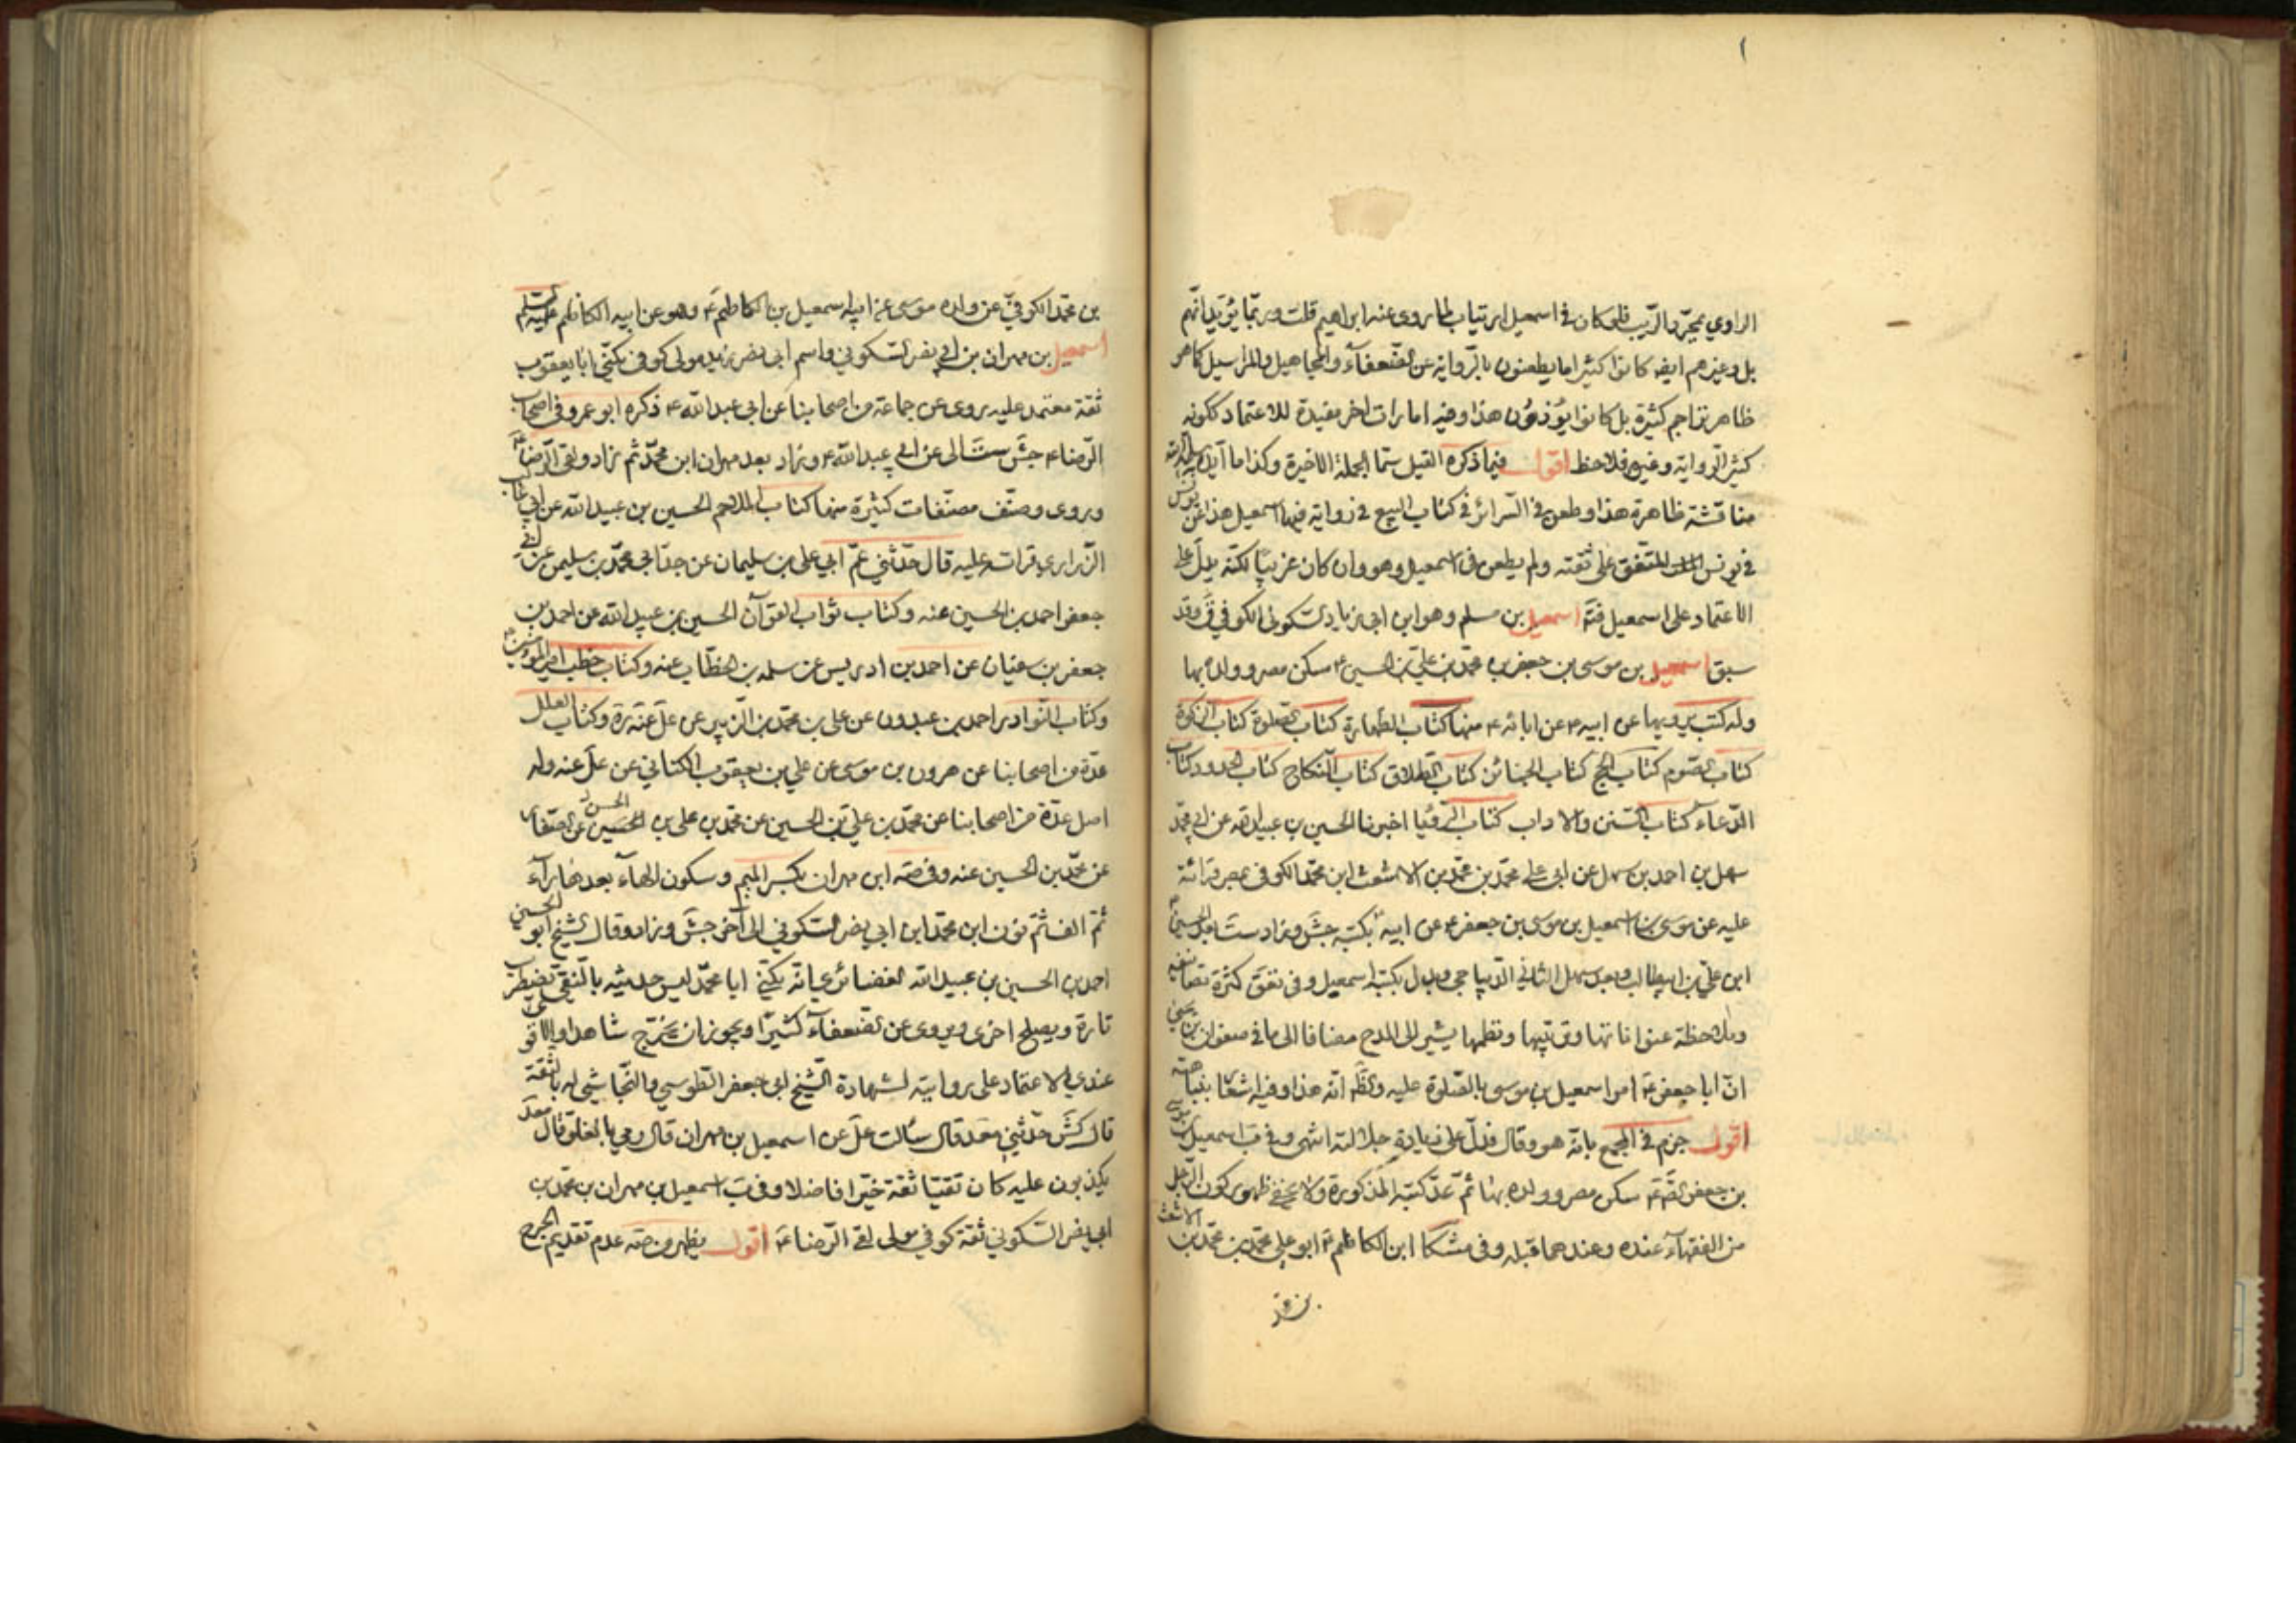 الراوي بمجرد الريب فلو كان في اسمعيل ارتياب لما روى عنه ابراهيم قلت وربما يؤيد انهم
بل وغيرهم ايضا كانوا كثيرا ما يطعنون بالرواية عن الضعفاء والمجاهيل والمراسيل كما هو
ظاهر تراجم كثيرة بل كانوا يؤذون هذا وفيه امارات اخر مفيدة للاعتماد ككونه
كثير الرواية وغيره فلاحظ اقول فيما ذكره القيل سيما الجملة الاخيرة وكذا ما ايده
مناقشة ظاهرة هذا وطعن في السرائر في كتاب البيع في رواية فيها اسمعيل هذا عن يونس
في يونس المتفق على ثقته ولم يطعن في اسمعيل وهو وان كان غريبا لكنه يدل على
الاعتماد على اسمعيل فتم اسمعيل بن مسلم وهو ابن ابي زياد السكوني الكوفي ق وقد
سبق اسمعيل بن موسى بن جعفر بن محمد بن علي بن الحسين ع سكن مصر وولده بها
وله كتب يرويها عن ابيه ع عن ابائه ع منها كتاب الطهارة كتاب الصلوة كتاب الزكوة
كتاب الصوم كتاب الحج كتاب الجنائز كتاب الطلاق كتاب النكاح كتاب الحدود كتاب
الدعاء كتاب السنن والاداب كتاب الرؤيا اخبرنا الحسين بن عبيد الله عن ابي محمد
سهل بن احمد بن سهل عن ابي علي محمد بن محمد بن الاشعث ابن محمد الكوفي بمصر قرائة
عليه عن موسى بن اسمعيل بن موسى بن جعفر ع عن ابيه بكتبه جش وزاد ست قبل الحسين ع
ابن علي بن ابيطالب وبعد سهل الثاني الديباجي وبدل بكتبه اسمعيل وفي تعق كثرة تصانيفه
وملاحظة عنواناتها وترتيبها ونظمها يشير الى المدح مضافا الى ما في صفوان بن يحيى
ان ابا جعفر ع امر اسمعيل بن موسى بالصلوة عليه والظ انه هذا وفيه اشعار بنباهته
اقول جزم في المجمع بانه هو وقال فدل على زيادة جلالته انتهى وفي ب اسمعيل بن موسى
بن جعفر الصم ع سكن مصر وولده بها ثم عد كتبه المذكورة ولا يخفى ظهور كون الرجل
من الفقهاء عنده وعندهما قبله وفي مشكا ابن الكاظم ع ابو علي محمد بن محمد بن الاشعث
بن محمد
بن محمد الكوفي عن والده موسى عن ابيه اسمعيل بن الكاظم ع وهو عن ابيه الكاظم عليه السلم
اسمعيل بن مهران بن ابي نصر السكوني واسم ابي نصر زيد مولى كوفي يكنى ابا يعقوب
ثقة معتمد عليه روى عن جماعة من اصحابنا عن ابي عبد الله ع ذكره ابو عمرو في اصحاب
الرضا ع جش ست الى عن ابي عبد الله ع وزاد بعد مهران ابن محمد ثم زاد ولقى الرضا ع
وروى وصنف مصنفات كثيرة منها كتاب الملاحم الحسين بن عبيد الله عن ابي غالب
الزراري قرات عليه قال حدثني عم ابي علي بن سليمان عن جد ابي محمد بن سليمن عن ابي
جعفر احمد بن الحسين عنه وكتاب ثواب القرآن الحسين بن عبيد الله عن احمد بن
جعفر بن سفيان عن احمد بن ادريس عن سلمه بن الخطاب عنه وكتاب خطب امير المؤمنين ع
وكتاب النوادر احمد بن عبدون عن علي بن محمد بن الزبير عن عل عنه وكتاب العلل
عدة من اصحابنا عن هرون بن موسى عن علي بن يعقوب الكناني عن عل عنه وله
اصل عدة من اصحابنا عن محمد بن علي بن الحسين عن محمد بن علي بن الحسين الحسن عن الصفار
عن محمد بن الحسين عنه وفي صه ابن مهران بكسر الميم وسكون الهاء بعدها راء
ثم الف ثم نون ابن محمد ابن ابي نصر السكوني الى آخر جش وزاد وقال الشيخ ابو الحسين
احمد بن الحسين بن عبيد الله الغضائري انه يكنى ابا محمد ليس حديثه بالنقي يضطرب
تارة ويصلح اخرى ويروى عن الضعفاء كثيرا ويجوز ان يخرج شاهدا والاقوى
عندي الاعتماد على روايته لشهادة الشيخ ابي جعفر الطوسي والنجاشي له بالثقة
قال كش حدثني معد قال سألت عل عن اسمعيل بن مهران قال رمي بالغلو قال معد
يكذبون عليه كان تقيا ثقة خيرا فاضلا وفي ب اسمعيل بن مهران بن محمد بن
ابي نصر السكوني ثقة كوفي مولى لقى الرضا ع اقول يظهر من صه عدم تقديم الجرح